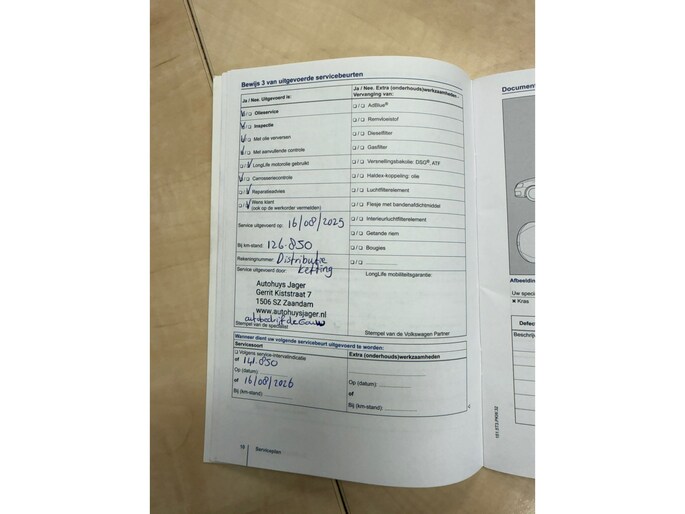 Bewijs 3 van uitgevoerde servicebeurten
Ja / Nee. Uitgevoerd is:
Olieservice
Inspectie
Met olie verversen
Met aanvullende controle
LongLife motorolie gebruikt
Carrosseriecontrole
Reparatieadvies
Wens klant
(ook op de werkorder vermelden)
Service uitgevoerd op: 16/08/2025
Bij km-stand: 126.850
Rekeningnummer: Distributie
ketting
Service uitgevoerd door:
Autohuys Jager
Gerrit Kiststraat 7
1506 SZ Zaandam
www.autohuysjager.nl
Stempel van de specialist
Ja / Nee. Extra (onderhouds)werkzaamheden
Vervanging van:
AdBlue®
Remvloeistof
Dieselfilter
Gasfilter
Versnellingsbakolie: DSG®, ATF
Haldex-koppeling: olie
Luchtfilterelement
Flesje met bandenafdichtmiddel
Interieurluchtfilterelement
Getande riem
Bougies
LongLife mobiliteitsgarantie:
Stempel van de Volkswagen Partner
Wanneer dient uw volgende servicebeurt uitgevoerd te worden:
Servicesoort
Volgens service-intervalindicatie
of 141.850
Op (datum):
of 16/08/2026
Bij (km-stand):
Extra (onderhouds)werkzaamheden
Op (datum):
of
Bij (km-stand):
Serviceplan
Document
Afbeelding
Uw speci
Kras
Defec
Beschrij